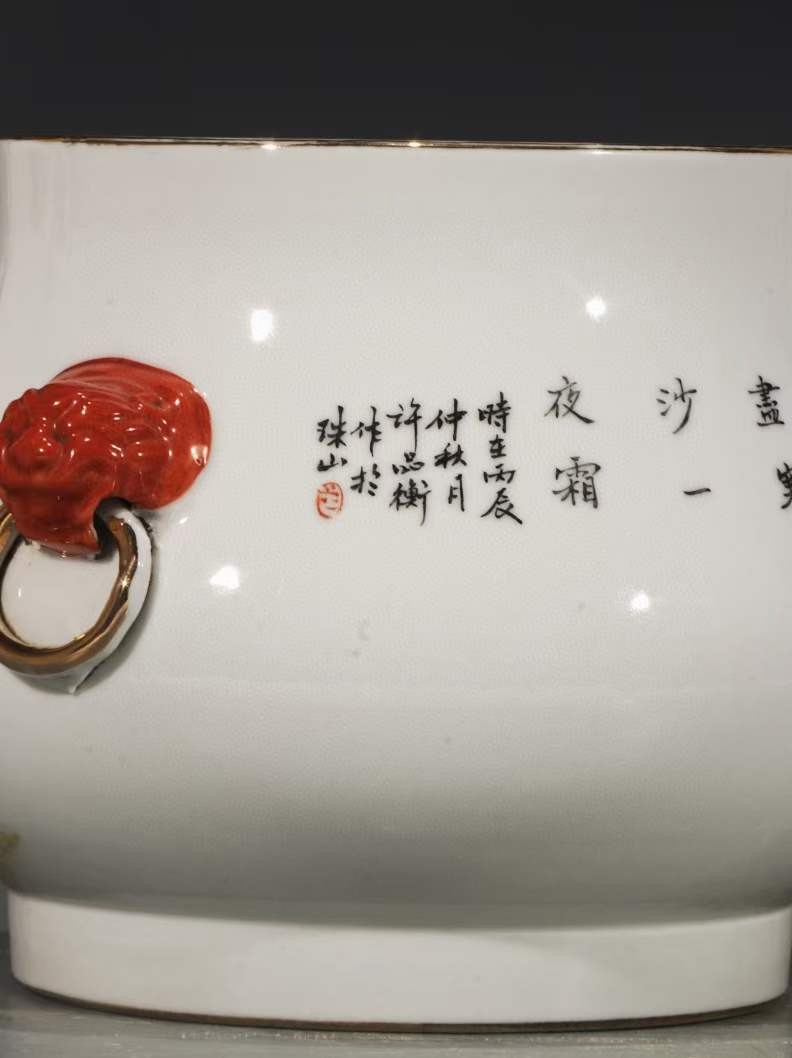 盡
沙一
夜霜
時在丙辰
仲秋月
許品衡
作於
珠山